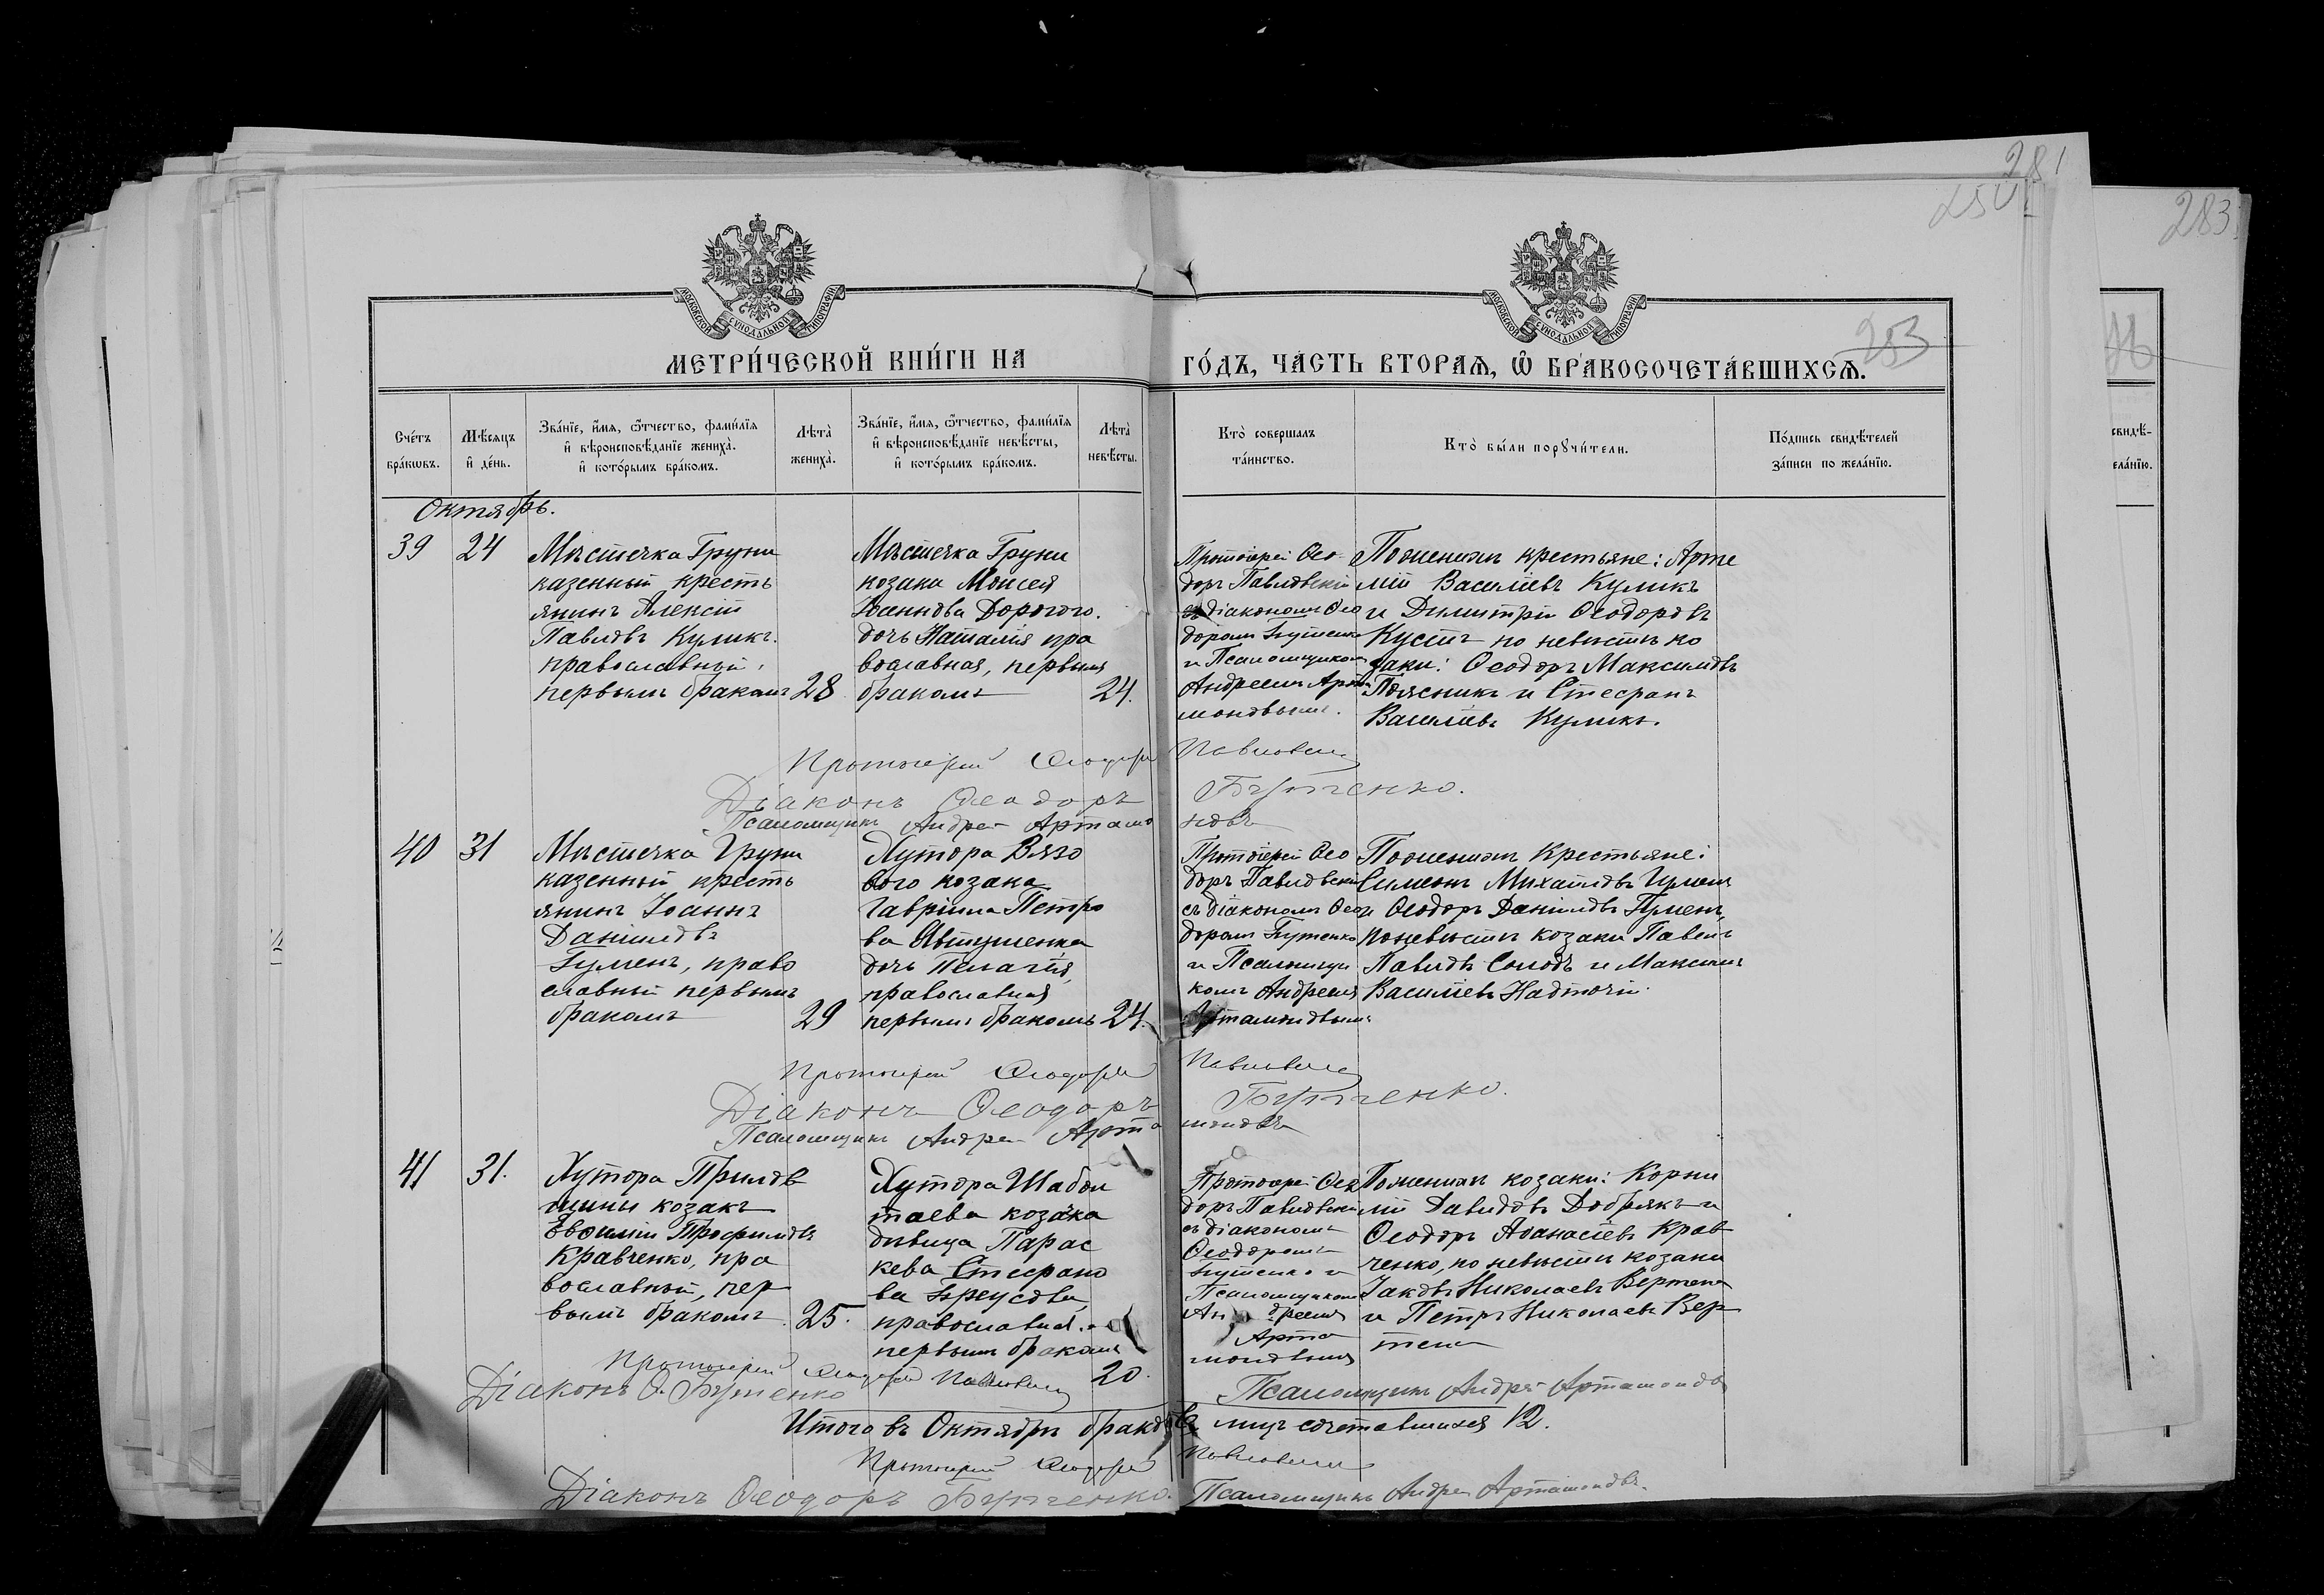 281
250
283
МОСКОВСКОЙ СѴНОДАЛЬНОЙ ТИПОГРАФІИ
МОСКОВСКОЙ СѴНОДАЛЬНОЙ ТИПОГРАФІИ
253
МЕТРИ́ЧЕСКОЙ КНИ́ГИ НА ГО́ДЪ, ЧА́СТЬ ВТОРАѦ, Ѡ҆ БРАКОСОЧЕТА́ВШИХСѦ.
Сче́тъ
бра́кѡвъ.
Мѣ́сяцъ
и҆ де́нь.
Зва́нїе, и҆́мя, ѻ҆́тчество, фами́лїя
и҆ вѣроисповѣ́данїе жениха̀.
и҆ кото́рымъ бра́комъ.
Лѣта̀
жениха̀.
Зва́нїе, и҆́мя, ѻ҆́тчество, фами́лїя
и҆ вѣроисповѣ́данїе невѣ́сты,
и҆ кото́рымъ бра́комъ.
Лѣта̀
невѣ́сты.
Кто̀ соверша́лъ
та́инство.
Кто̀ бы́ли порꙋчи́тели.
По́дпись свидѣ́телей
за́писи по жела́нїю.
свидѣ́-
ела́нїю.
Октябрь.
39
24
Мѣстечка Груни
казенный кресть
янинъ Алексій
Павловъ Куликъ.
православный,
первымъ бракомъ
28
Мѣстечка Груни
козака Моисея
Іоаннова Дорогого.
дочь Наталія пра
вославная, первымъ
бракомъ
24.
Протоіерей Ѳео
доръ Павловскій
съ діакономъ Ѳео
доромъ Бутенко
и Псаломщикомъ
Андреемъ Арта
моновымъ.
По женихѣ крестьяне: Арте
мій Василіевъ Куликъ
и Димитрій Ѳеодоровъ
Кустъ по невѣстѣ ко
заки: Ѳеодоръ Максимовъ
Поясникъ и Стефанъ
Василіевъ Куликъ.
Протоіерей Ѳеодоръ Павловскій
Діаконъ Ѳеодоръ Бутенко.
Псаломщикъ Андрей Артамоновъ
40
31
Мѣстечка Груни
казенный кресть
янинъ Іоаннъ
Даніиловъ
Гуменъ, право
славный первымъ
бракомъ
29
Хутора Вязо
вого козака
Гавріила Петро
ва Явтушенка
дочь Пелагія,
православная
первымъ бракомъ
24.
Протоіерей Ѳео
доръ Павловскій
съ діакономъ Ѳео
доромъ Бутенко
и Псаломщи
комъ Андреемъ
Артамоновымъ
По женихѣ Крестьяне:
Симеонъ Михаиловъ
и Ѳеодоръ Даніиловъ Гуменъ,
по невѣстѣ козаки Павелъ
Павловъ Солодъ и Максимъ
Василіевъ Надточій.
Протоіерей Ѳеодоръ Павловскій
Діаконъ Ѳеодоръ Бутенко.
Псаломщикъ Андрей Артамоновъ
41
31.
Хутора Прилов
щины козакъ
Евѳимій Трофимовъ
Кравченко, пра
вославный, пер
вымъ бракомъ
25.
Хутора Шабал
таева козака
дѣвица Парас
кева Стефано
ва Бреусова,
православная.
первымъ бракомъ
20.
Протоіерей Ѳео
доръ Павловскій
съ діакономъ
Ѳеодоромъ
Бутенко и
Псаломщикомъ
Андреемъ
Арта
моновымъ
По женихѣ козаки: Корни
лій Давидовъ Добрякъ и
Ѳеодоръ Аѳанасіевъ Крав
ченко, по невѣстѣ козаки
Іаковъ Николаевъ Вертела
и Петръ Николаевъ Вер
тела
Протоіерей Ѳеодоръ Павловскій
Діаконъ Ѳ. Бутенко
Псаломщикъ Андрей Артамоновъ
Итого въ Октябрѣ браковъ лицъ сочетавшихся 12.
Протоіерей Ѳеодоръ Павловскій
Діаконъ Ѳеодоръ Бутенко. Псаломщикъ Андрей Артамоновъ.